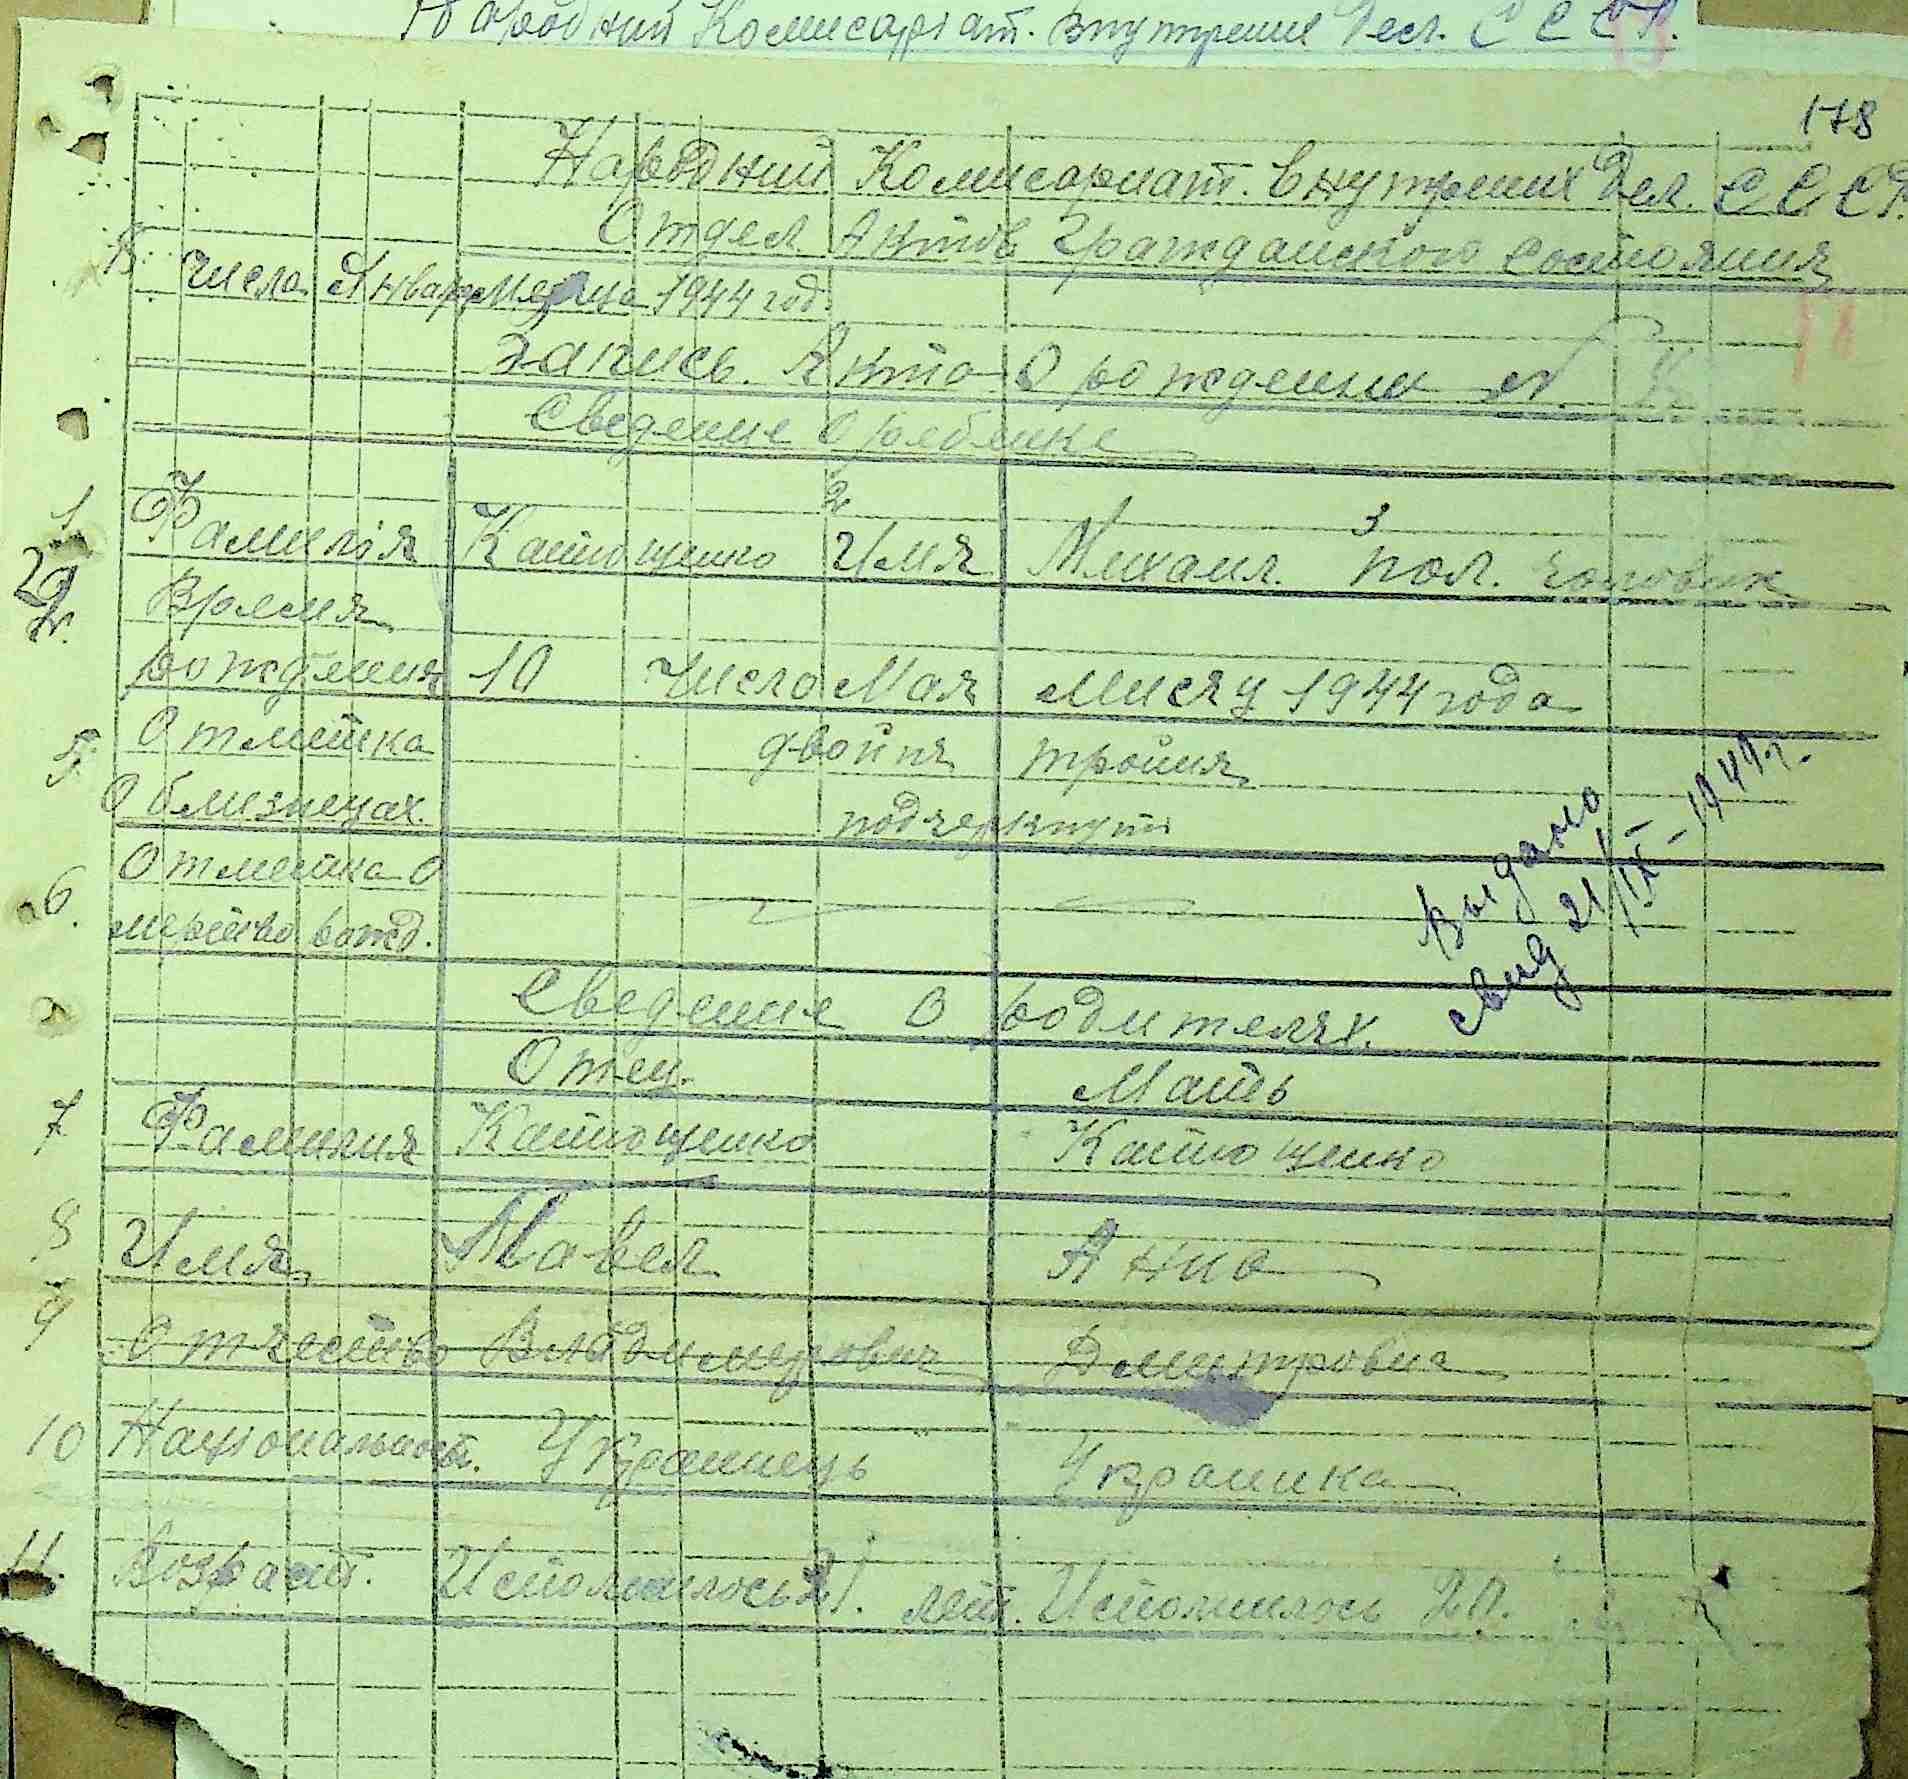 Народний Комисариат. Внутрених Дел. С С С Р.
178
Народний Комисариат. Внутрених Дел. С С С Р.
Отдел Актов Гражданского Состояния
15 числа Января месяца 1944 год.
Запись. Акта О рождении №
Сведение О ребенке
2
3
1 Фамилія Катющенко Имя Михаил. Пол. чоловик
Время
рождения 10 Число Мая мисяц 1944 года
5. Отметка двойня тройня
О близнецах. подчеркнут
6. Отметка О
мертво рожд.
Выдано
свид 21/IX-1944 г.
Сведение О родителях.
Отец. Мать
7 Фамилия Катющенко Катющенко
8 Имя Павел Анна
9 Отчество Владимерович Дмитровна
10 Национальност. Украинець Украинка
11. Возраст. Исполнилось 21. лет. Исполнилось 20.